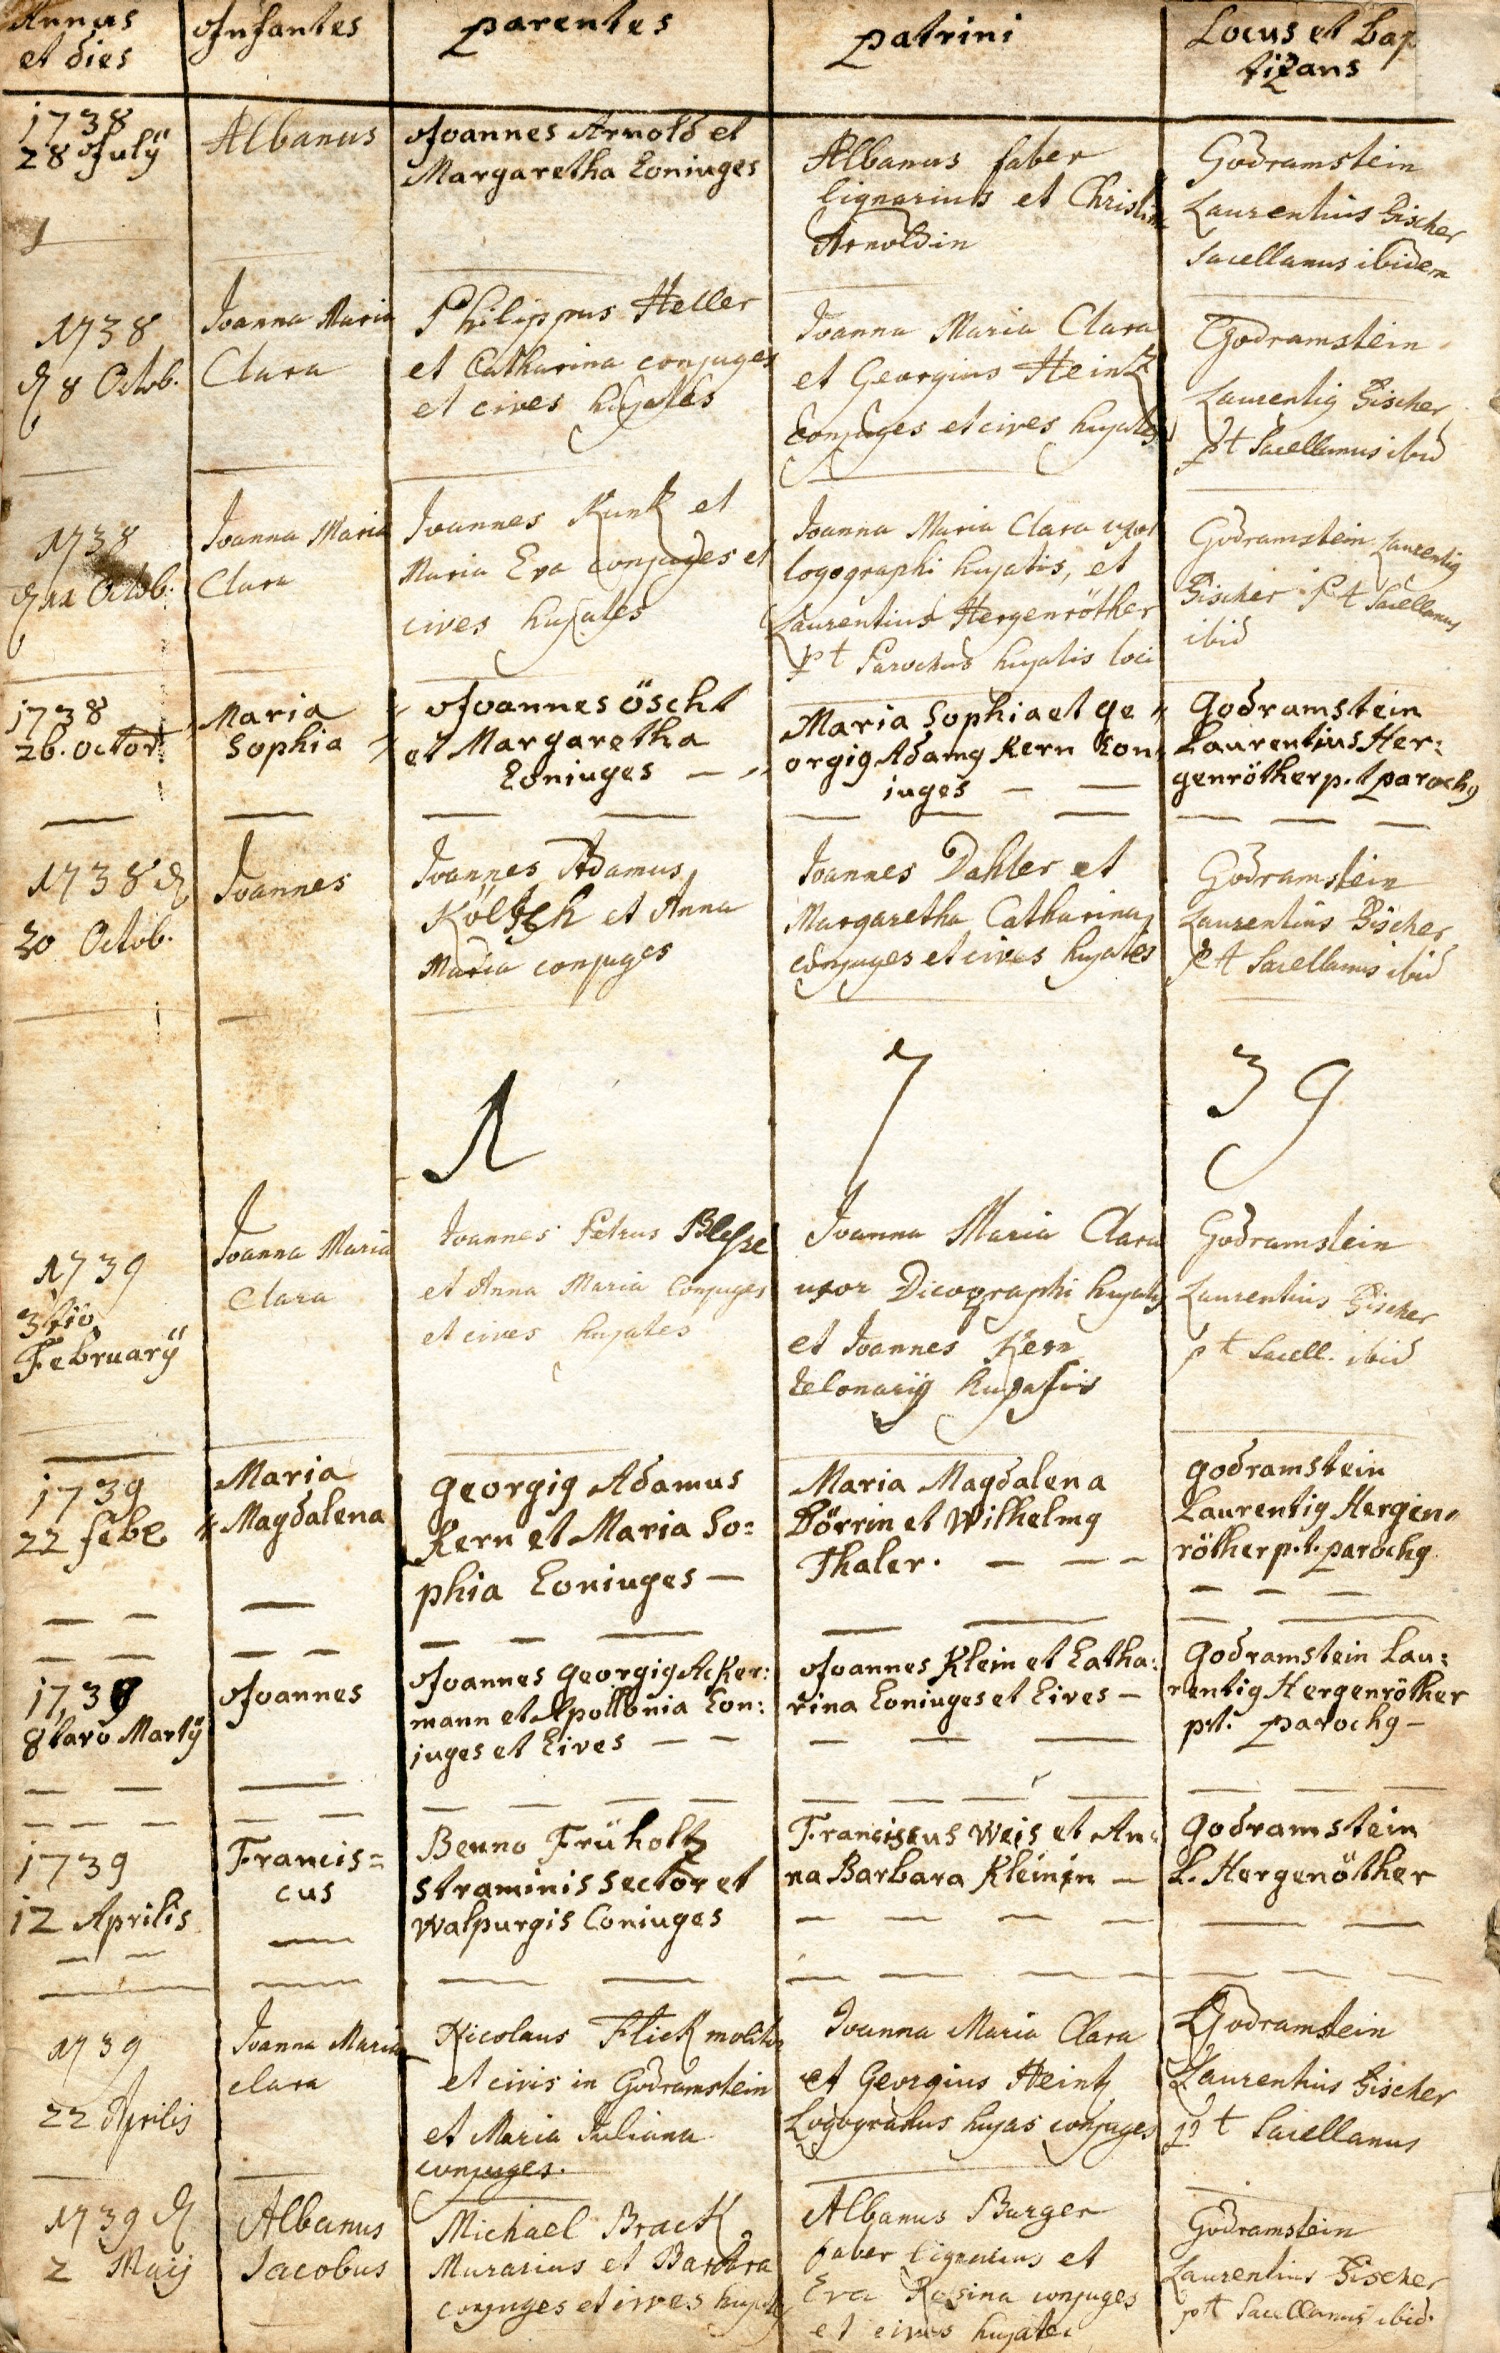 Annus
et dies
Infantes
parentes
patrini
Locus et bap
tizans
1738
28 Julÿ
Albanus
Joannes Arnold et
Margaretha Coniuges
Albanus faber
lignarius et Christin
Arnoldin
Godramstein
Laurentius Fischer
Sacellanus ibidem
1738
d 8 Octob.
Joanna Maria
Clara
Philippus Heller
et Catharina conjuges
et cives hujates
Joanna Maria Clara
et Georgius Heintz
Conjuges et cives hujates
Godramstein
Laurentig Fischer
pt Sacellanus ibid
1738
d 11 Octob.
Joanna Maria
Clara
Joannes Kunk et
Maria Eva conjuges et
cives hujates
Joanna Maria Clara uxor
logographi hujatis, et
Laurentius Hergenröther
pt Parochus hujatis loci
Godramstein Laurentig
Fischer Pt Sacellanus
ibid
1738
26. octor.
Maria
Sophia
Joannes öscht
et Margaretha
Coniuges
Maria Sophia et ge
orgig Adamg Kern Kon
iuges
Godramstein
Laurentius Her:
genröther p. t parochg
1738 d
30 Octob.
Joannes
Joannes Adamus
Költsch et Anna
Maria conjuges
Joannes Dahler et
Margaretha Catharina
conjuges et cives hujates
Godramstein
Laurentius Fischer
pt Sacellanus ibid
1 7 39
1739
3tio
Februarÿ
Joanna Maria
Clara
Joannes Petrus
et Anna Maria Conjuges
et cives hujates
Joanna Maria Clara
uxor Dicographi hujatis
et Joannes Kern
telonarÿ hujatis
Godramstein
Laurentius Fischer
pt Sacell. ibid
1739
22 febr
Maria
Magdalena
georgig Adamus
Kern et Maria So:
phia Coniuges
Maria Magdalena
Dörrin et Wilhelmg
Thaler.
godramstein
Laurentig Hergen
röther p. t. parochg
1739
8tavo Martÿ
Joannes
Joannes georgig Acker:
mann et Apollonia Con:
juges et Cives
Joannes Klein et Catha:
rina Coniuges et Cives
godramstein Lau:
rentig Hergenröther
pt. parochg
1739
12 Aprilis
Francis=
cus
Benno Früholtz
straminis sector et
walpurgis Coniuges
Franciscus Weis et An
na Barbara Kleinin
godramstein
L. Hergenöther
1739
22 Aprilis
Joanna Maria
clara
Nicolaus Flick molitor
et civis in Godramstein
et Maria Juliana
conjuges.
Joanna Maria Clara
et Georgius Heintz
Logographus hujas conjuges
Godramstein
Laurentius Fischer
pt Sacellanus
1739 d
2 Maij
Albanus
Jacobus
Michael Brack
Murarius et Barbara
conjuges et cives hujates
Albanus Burger
faber lignarius et
Eva Rosina conjuges
et cives hujates
Godramstein
Laurentius Fischer
pt Sacellanus ibid.